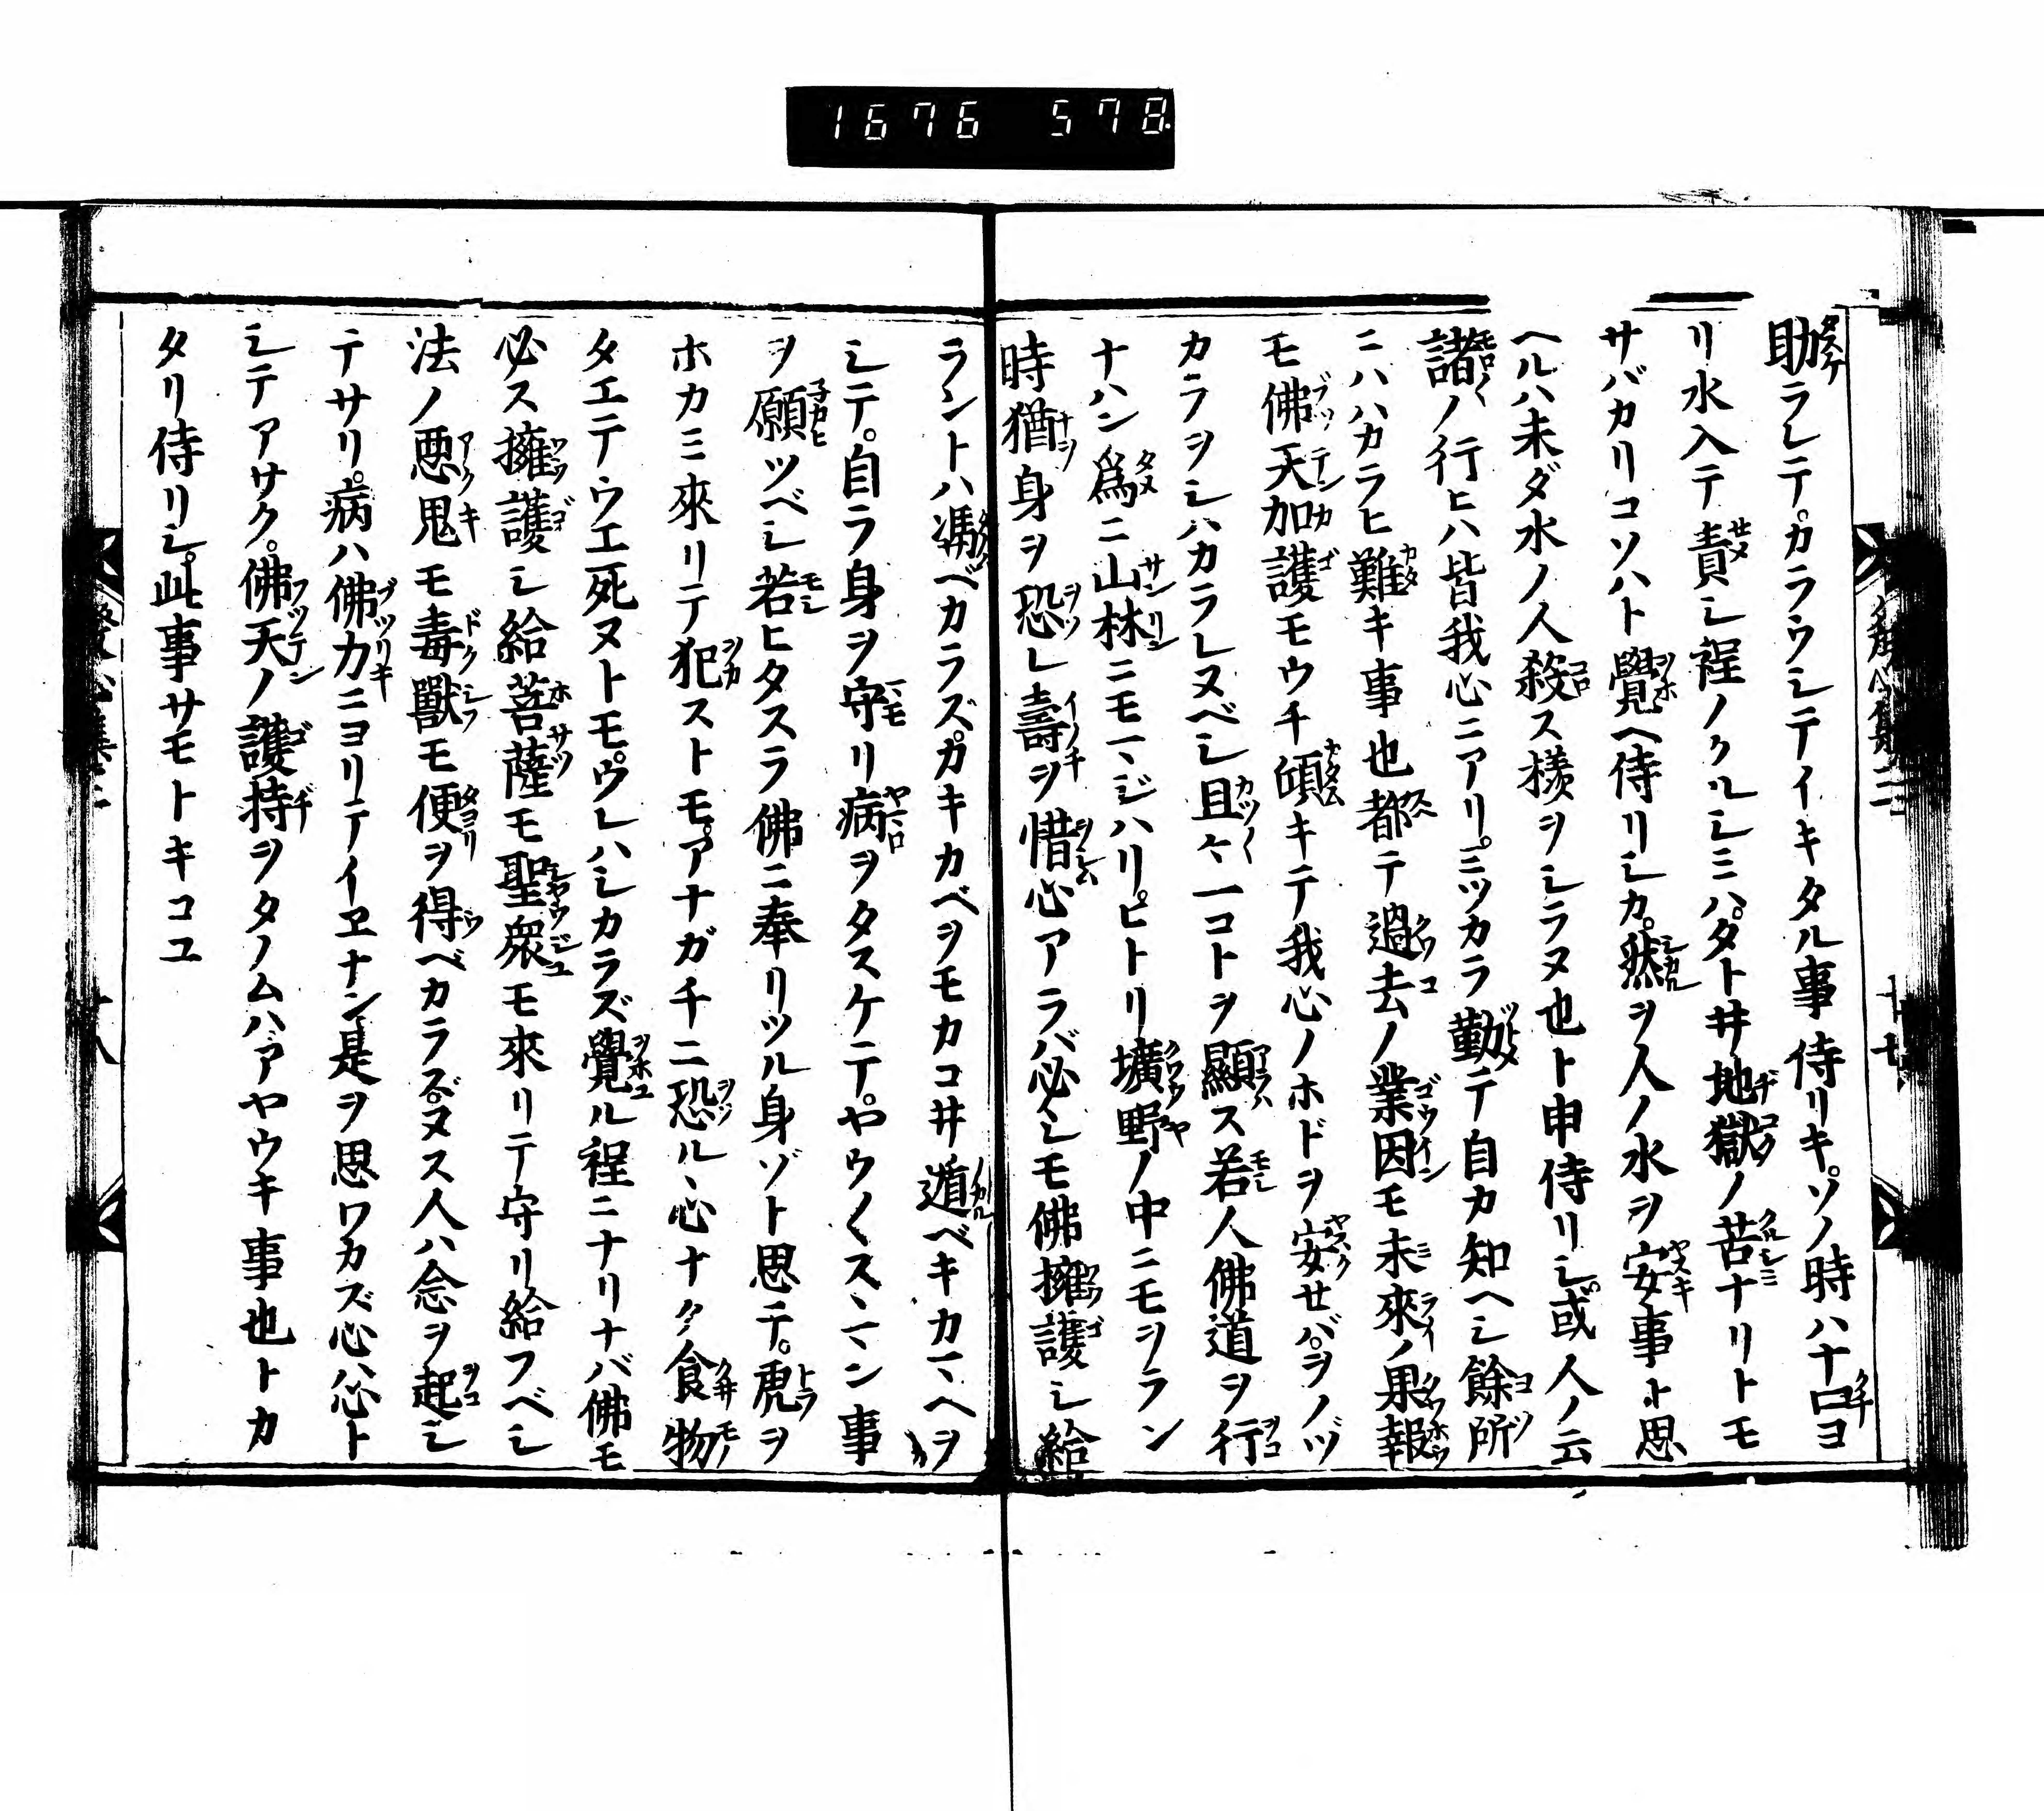 1676 578
助ラレテ。カラウシテイキタル事侍リキ。ソノ時ハナ口ヨ
リ水入テ責シ程ノクルシミハ。タトヰ地獄ノ苦ナリトモ
サバカリコソハト覺ヘ侍リシカ。然ヲ人ノ水ヲ安事ト思
ヘルハ未ダ水ノ人殺ス樣ヲシラヌ也ト申侍リシ。或人ノ云
諸ノ行ヒハ皆我心ニアリ。ミツカラ勤テ自カ知ヘシ餘所
ニハハカラヒ難キ事也都テ過去ノ業因モ未來ノ果報
モ佛天加護モウチ傾キテ我心ノホドヲ安セバ。ヲノヅ
カラヲシハカラレヌベシ且々一コトヲ顯ス若人佛道ヲ行
ナハン爲ニ山林ニモマジハリ。ヒトリ壙野ノ中ニモヲラン
時猶身ヲ恐レ壽ヲ惜心アラバ必シモ佛擁護シ給
ラントハ馮ベカラズ。カキカベヲモカコヰ遁ベキカマヘヲ
シテ。自ラ身ヲ守リ病ヲタスケテ。ヤウ〳〵スヽマン事
ヲ願ツベシ若ヒタスラ佛ニ奉リツル身ゾト思テ。虎ヲ
ホカミ來リテ犯ストモ。アナガチニ恐ルヽ心ナク食物
タエテウエ死ヌトモ。ウレハシカラズ覺ル程ニナリナバ佛モ
必ス擁護シ給菩薩モ聖衆モ來リテ守リ給フベシ
法ノ悪鬼モ毒獸モ便ヲ得ベカラズ。ヌス人ハ念ヲ起シ
テサリ。病ハ佛力ニヨリテイヱナン是ヲ思ワカズ心ハ心ト
シテアサク。佛天ノ護持ヲタノムハ。アヤウキ事也トカ
タリ侍リシ。此事サモトキコユ
發心集三
十七
發心集三
十八